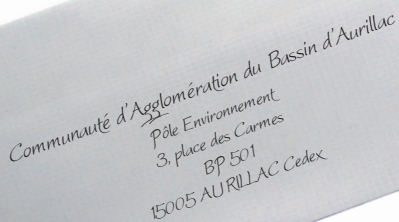 Communauté d'Agglomération du Bassin d'Aurillac
Pôle Environnement
3, place des Carmes
BP 501
15005 AURILLAC Cedex